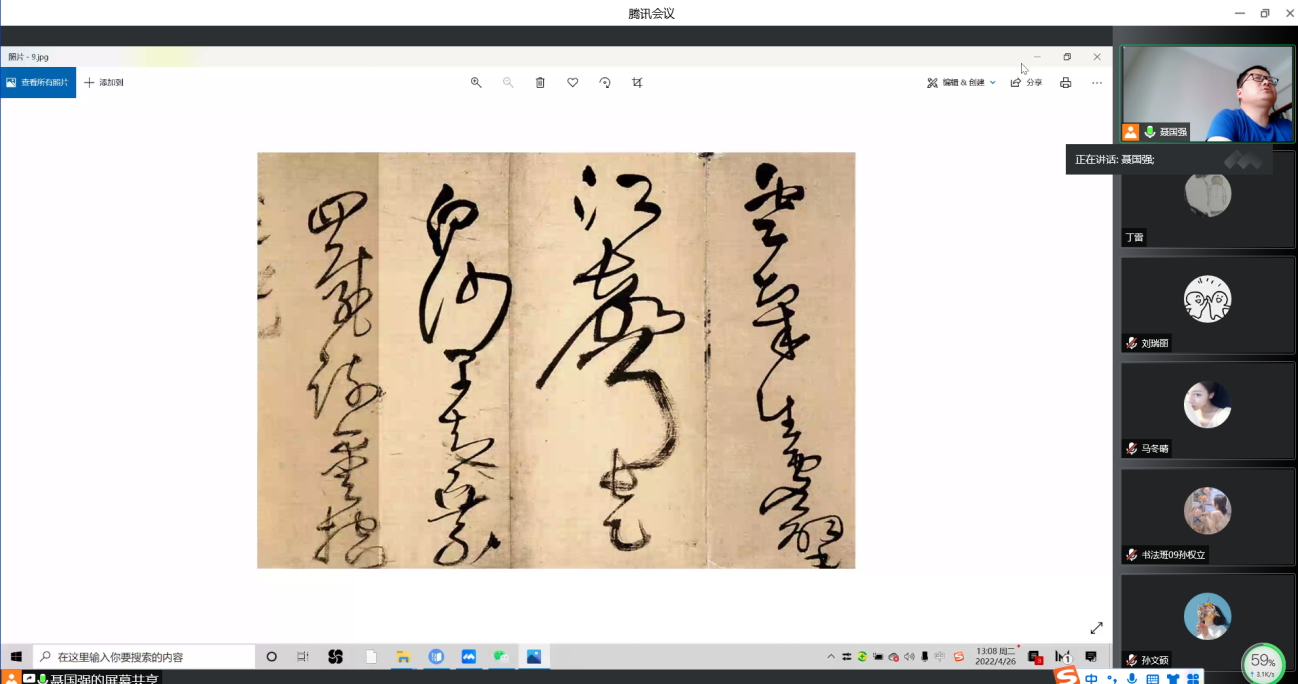 腾讯会议
照片 - 9.jpg
查看所有照片
添加到
编辑 & 创建
分享
雲氣生虛壁
江聲走
白沙早知乘
四載疏鑿控
聂国强
正在讲话: 聂国强;
丁雷
刘瑞丽
马冬晴
书法班09孙权立
孙文硕
在这里输入你要搜索的内容
13:08 周二
2022/4/26
中
59%
↑ 3.1K/s
聂国强的屏幕共享